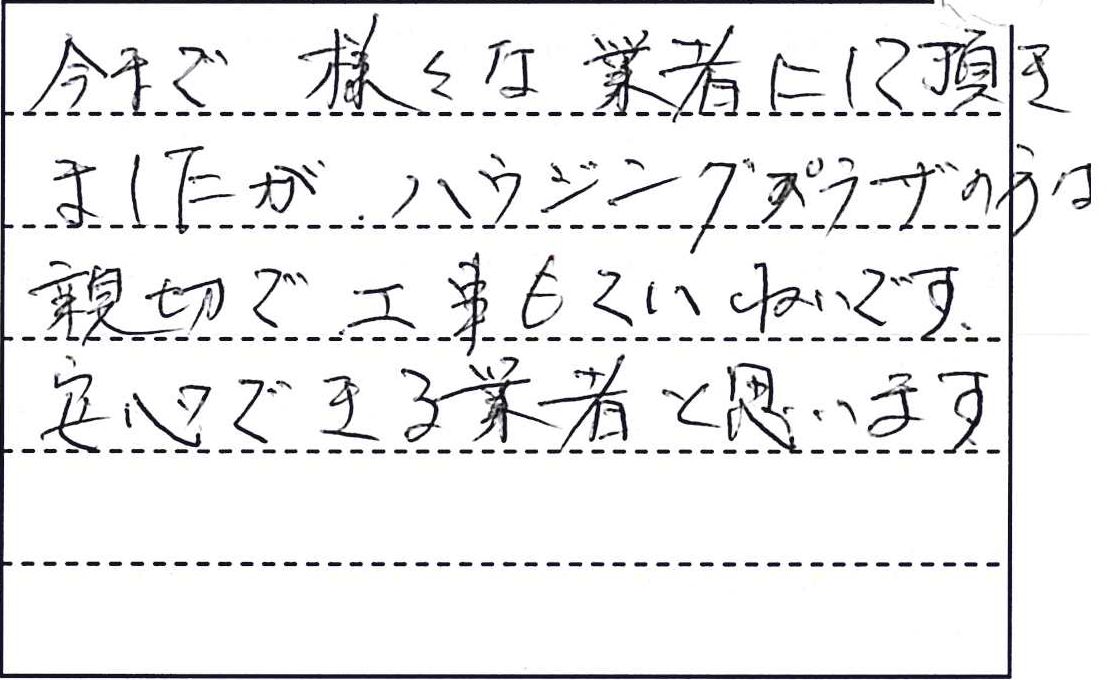 今まで 様々な業者にして頂き
ましたが、ハウジングプラザの方は
親切で、工事もていねいです。
安心できる業者と思います